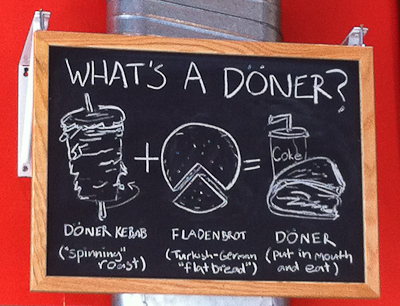 WHAT'S A DÖNER?
+ =
Coke
DÖNER KEBAB
("spinning"
roast)
FLADENBROT
(Turkish-German
"flatbread")
DÖNER
(put in mouth
and eat)